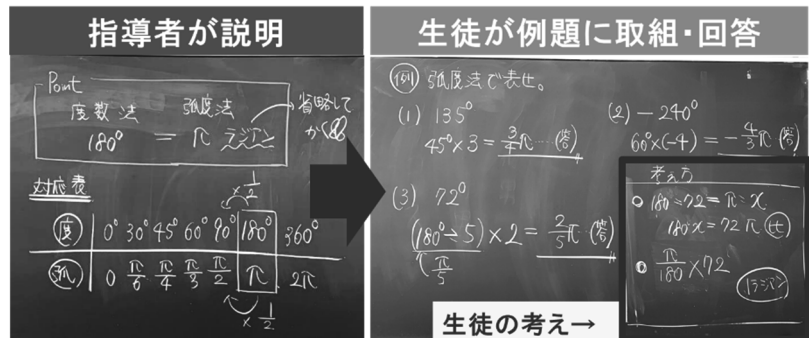 指導者が説明
Point
度数法 弧度法
180° = π ラジアン → 省略して
かく
対応表
×1/2
度 0° 30° 45° 60° 90° 180° 360°
弧 0 π/6 π/4 π/3 π/2 π 2π
×1/2
生徒が例題に取組・回答
例 弧度法で表せ。
(1) 135°
45°×3 = 3/4π…(答)
(2) -240°
60°×(-4) = -4/3π (答)
(3) 72°
(180°÷5)×2 = 2/5π…(答)
π/5
考え方
180:72=π:x
180x=72π
π/180×72
1ラジアン
生徒の考え→